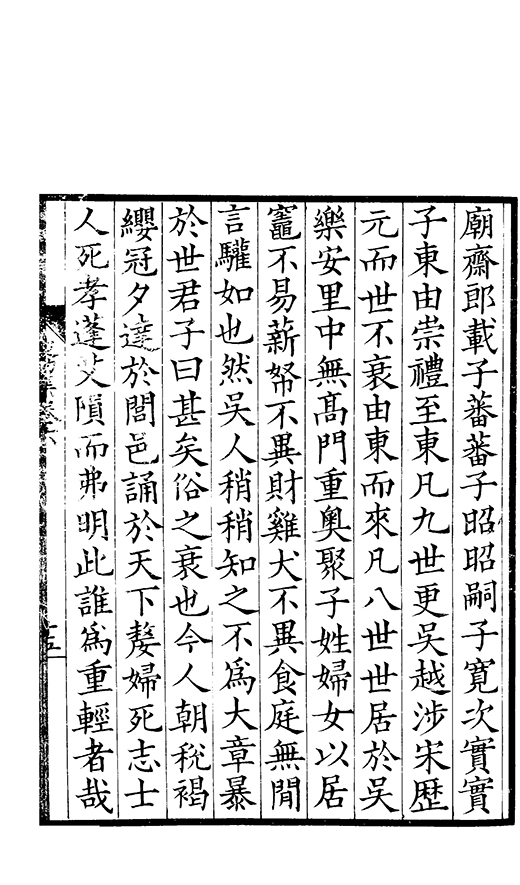 廟齋郎載子蕃蕃子昭昭嗣子寛次實實
子東由崇禮至東凡九世更吳越涉宋歴
元而世不衰由東而來凡八世世居於吳
樂安里中無髙門重奥聚子姓婦女以居
竈不易薪帑不異財雞犬不異食庭無閒
言驩如也然吳人稍稍知之不爲大章暴
於世君子曰甚矣俗之衰也今人朝稅褐
纓冠夕達於閭邑誦於天下嫠婦死志士
人死孝蓬艾隕而弗明此誰爲重輕者哉